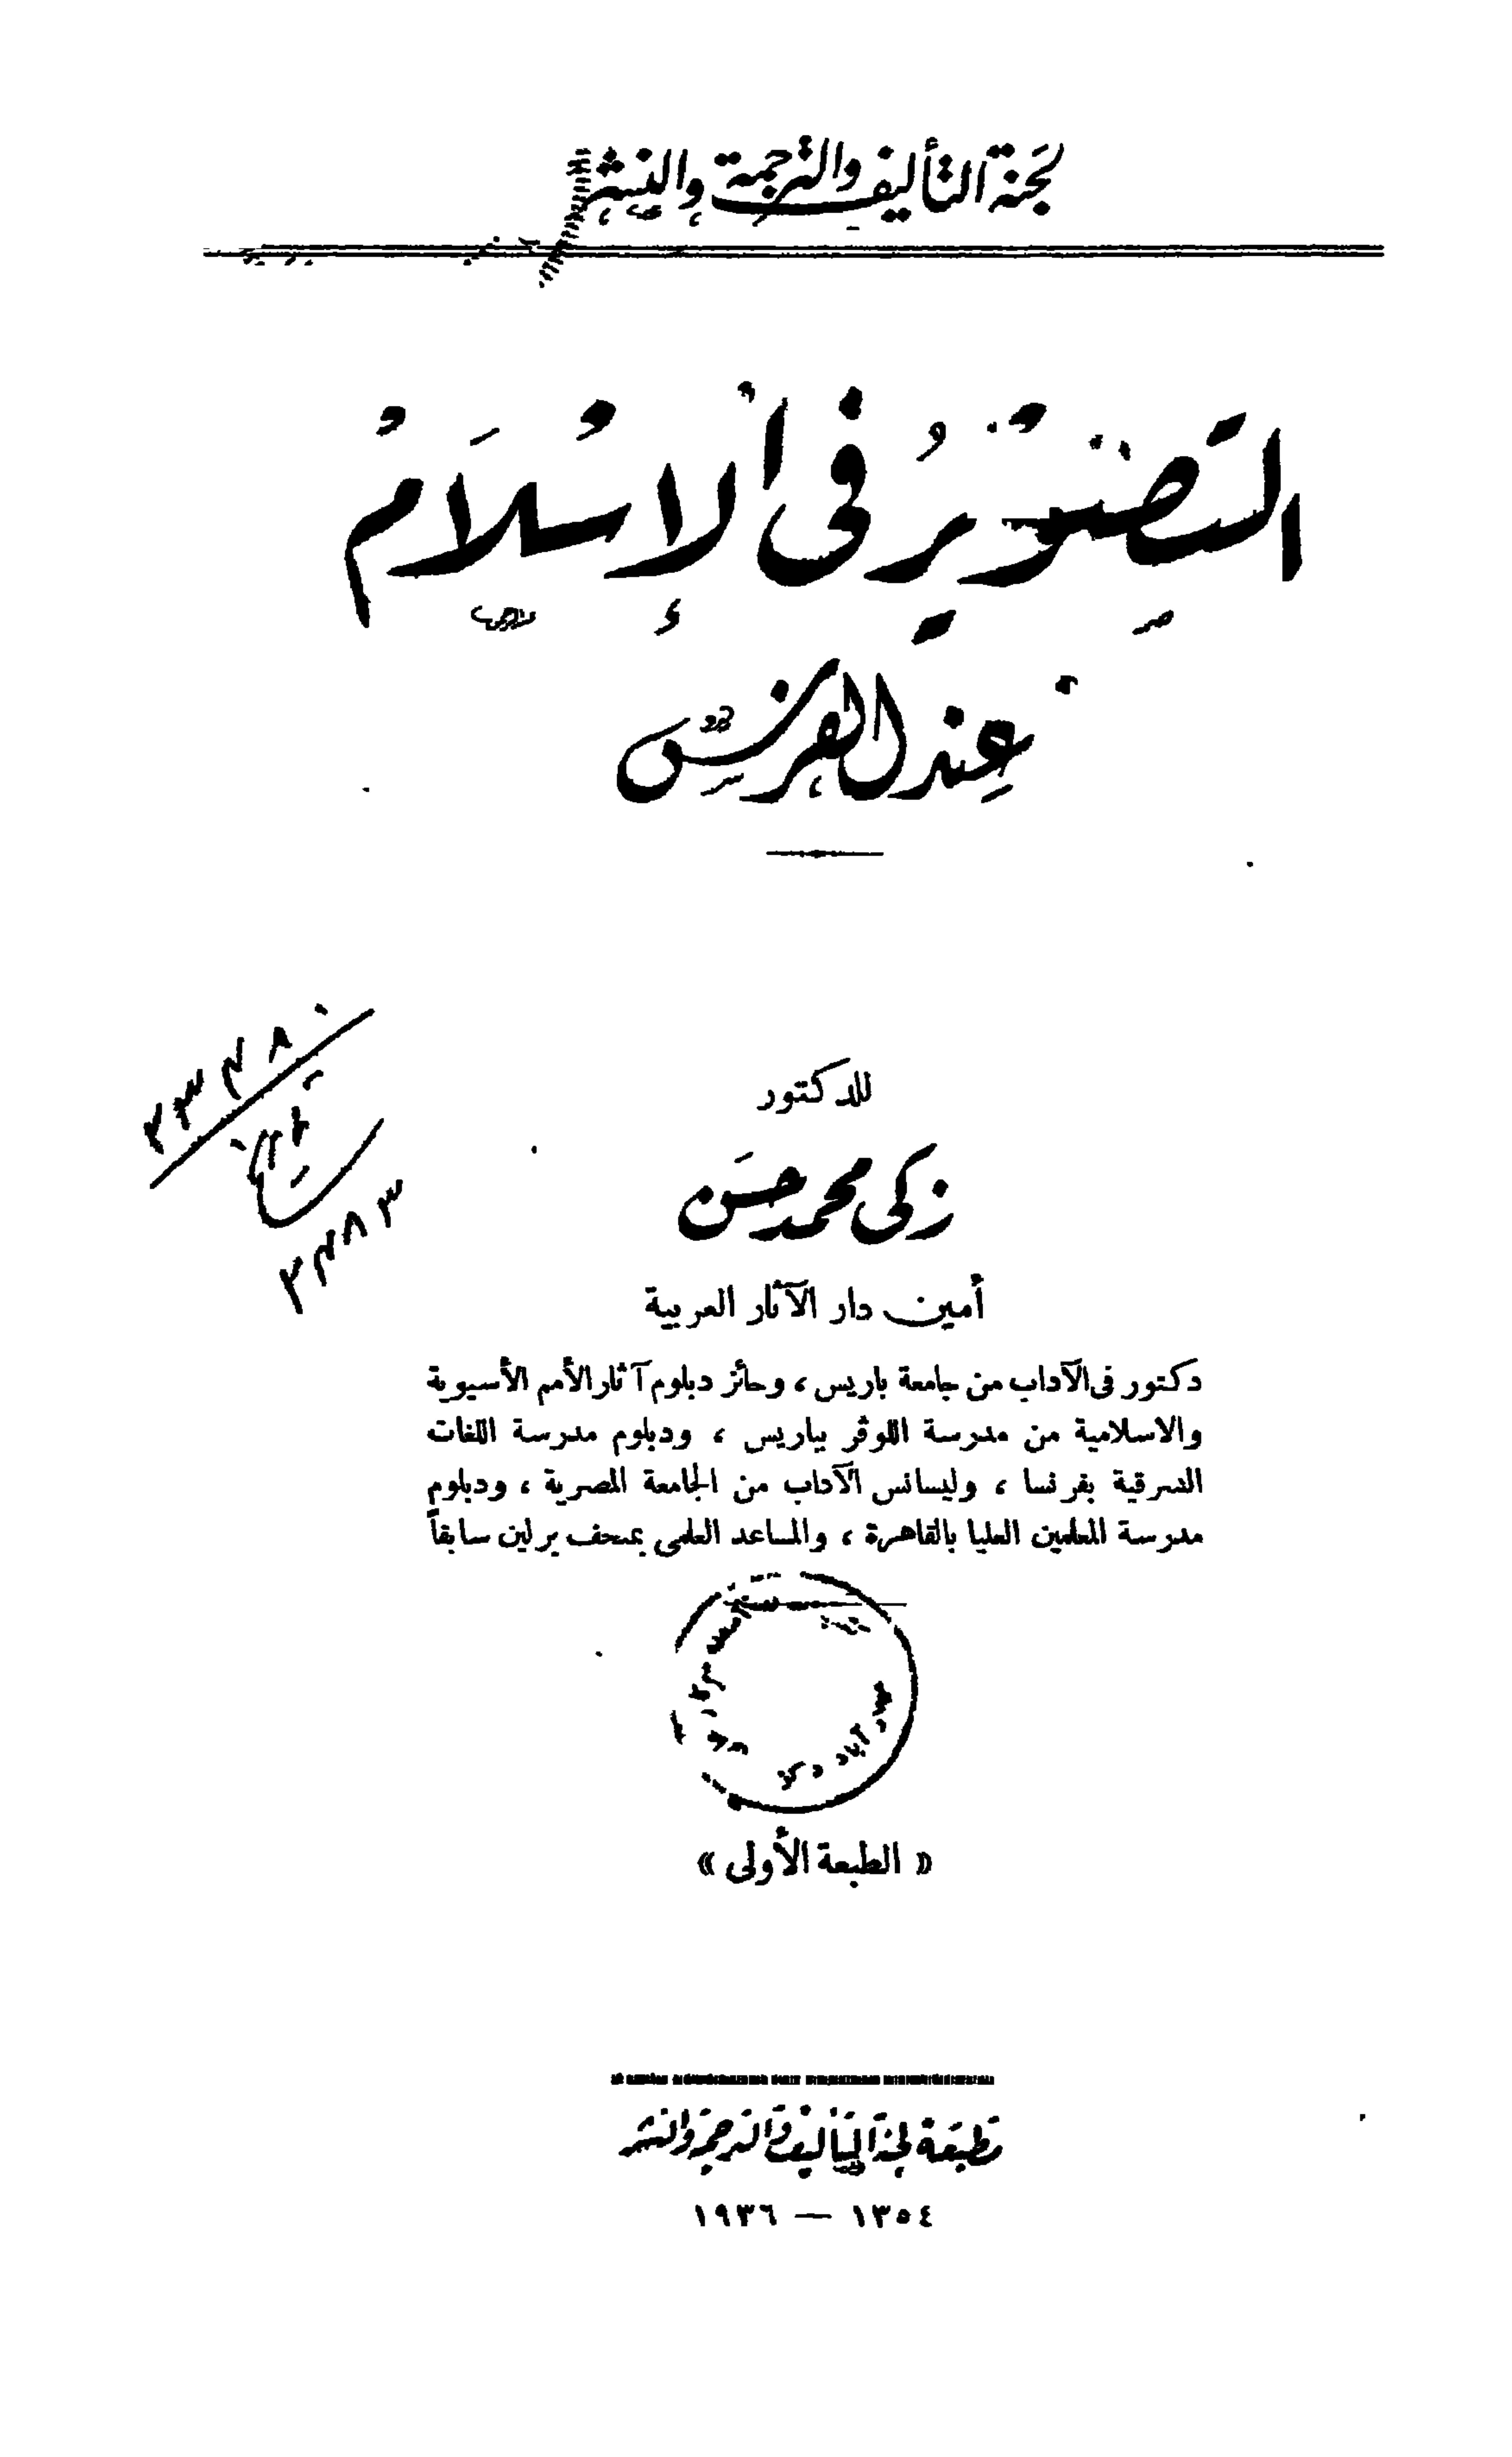 لجنة التأليف والترجمة والنشر
التصوير في الإسلام
عند الفرس
للدكتور
زكى محمد حسن
أمين دار الآثار العربية
دكتور فى الآداب من جامعة باريس ، وحائز دبلوم آثار الأمم الأسيوية
والاسلامية من مدرسة اللوڤر بباريس ، ودبلوم مدرسة اللغات
الشرقية بفرنسا ، وليسانس الآداب من الجامعة المصرية ، ودبلوم
مدرسة المعلمين العليا بالقاهرة ، والمساعد العلمى بمتحف برلين سابقاً
« الطبعة الأولى »
مطبعة لجنة التأليف والترجمة والنشر
١٣٥٤ — ١٩٣٦